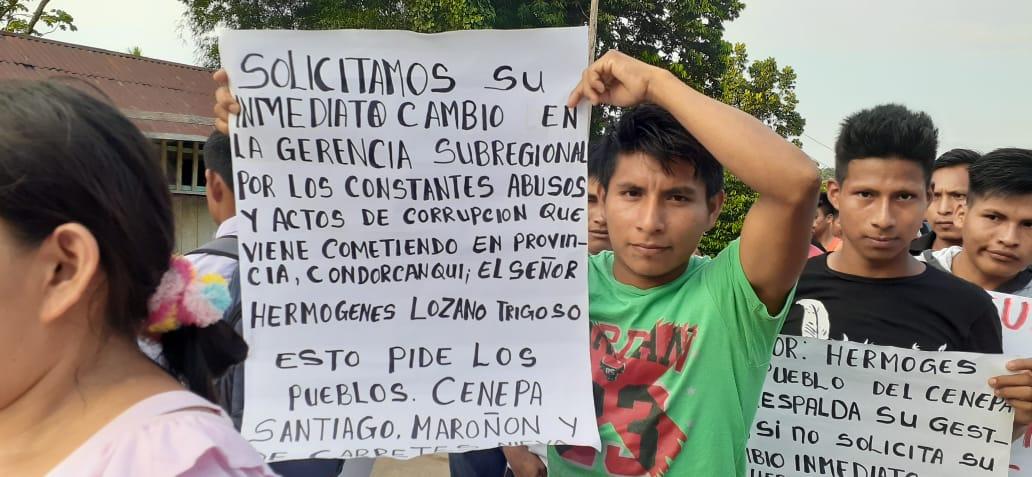 SOLICITAMOS SU
INMEDIATO CAMBIO EN
LA GERENCIA SUBREGIONAL
POR LOS CONSTANTES ABUSOS
Y ACTOS DE CORRUPCION QUE
VIENE COMETIENDO EN PROVIN-
CIA, CONDORCANQUI; EL SEÑOR
HERMOGENES LOZANO TRIGOSO
ESTO PIDE LOS
PUEBLOS. CENEPA
SANTIAGO, MAROÑON Y
23
OR. HERMOGES
PUEBLO DEL CENEPA
ESPALDA SU GEST-
SI NO SOLICITA SU
BIO INMEDIATO